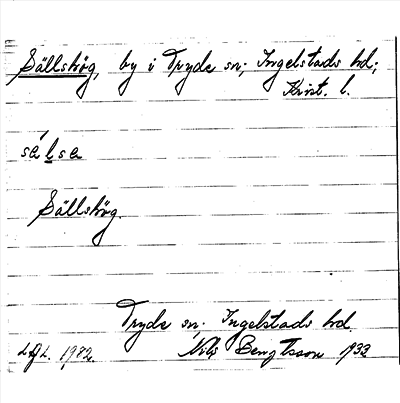 Sällshög, by i Tryde sn; Ingelstads hd;
Krist. l.
sɑ́lsɑ
Sällshög.
Tryde sn; Ingelstads hd.
Nils Bengtsson 1933
1982.